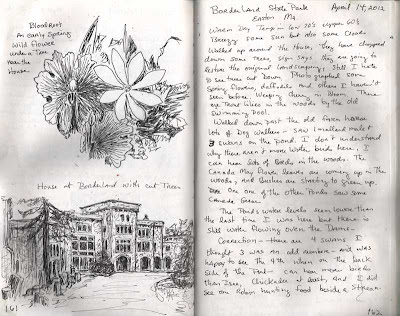 Bloodroot
An early Spring
Wild Flower
under a Tree
near the
House.
House at Borderland with cut Trees
161
Borderland State Park April 14, 2012
Easton Ma
Warm Day Temp - low 70's upper 60's
Breezy some sun but also some Clouds
Walked up around the House; They have chopped
down some trees, sign says they are going to
restore the original landscaping. Still I hate
to see trees cut down. Photographed some
Spring flowers, daffodils and others I haven't
seen before. Weeping Cherry in Bloom. There
are Trout Lilies in the woods by the old
Swimming Pool.
Walked down past the old farm house
lots of Dog Walkers - Saw 1 mallard male &
3 swans on the pond. I don't understand
why there aren't more water birds here. I
can hear lots of Birds in the woods. The
Canada May flower leaves are coming up in the
woods, and Bushes are starting to green up.
one of the other Ponds saw some
Canada Geese.
The Pond's water levels seem lower than
the last time I was here but there is
still water flowing over the Dams -
Correction - there are 4 swans. I
thought 3 was an odd number - and was
happy to see the 4th when on the back
side of the Pond - can hear more birds
than I see, Chickadee at least, and I did
see one Robin hunting food beside a Stream.
162